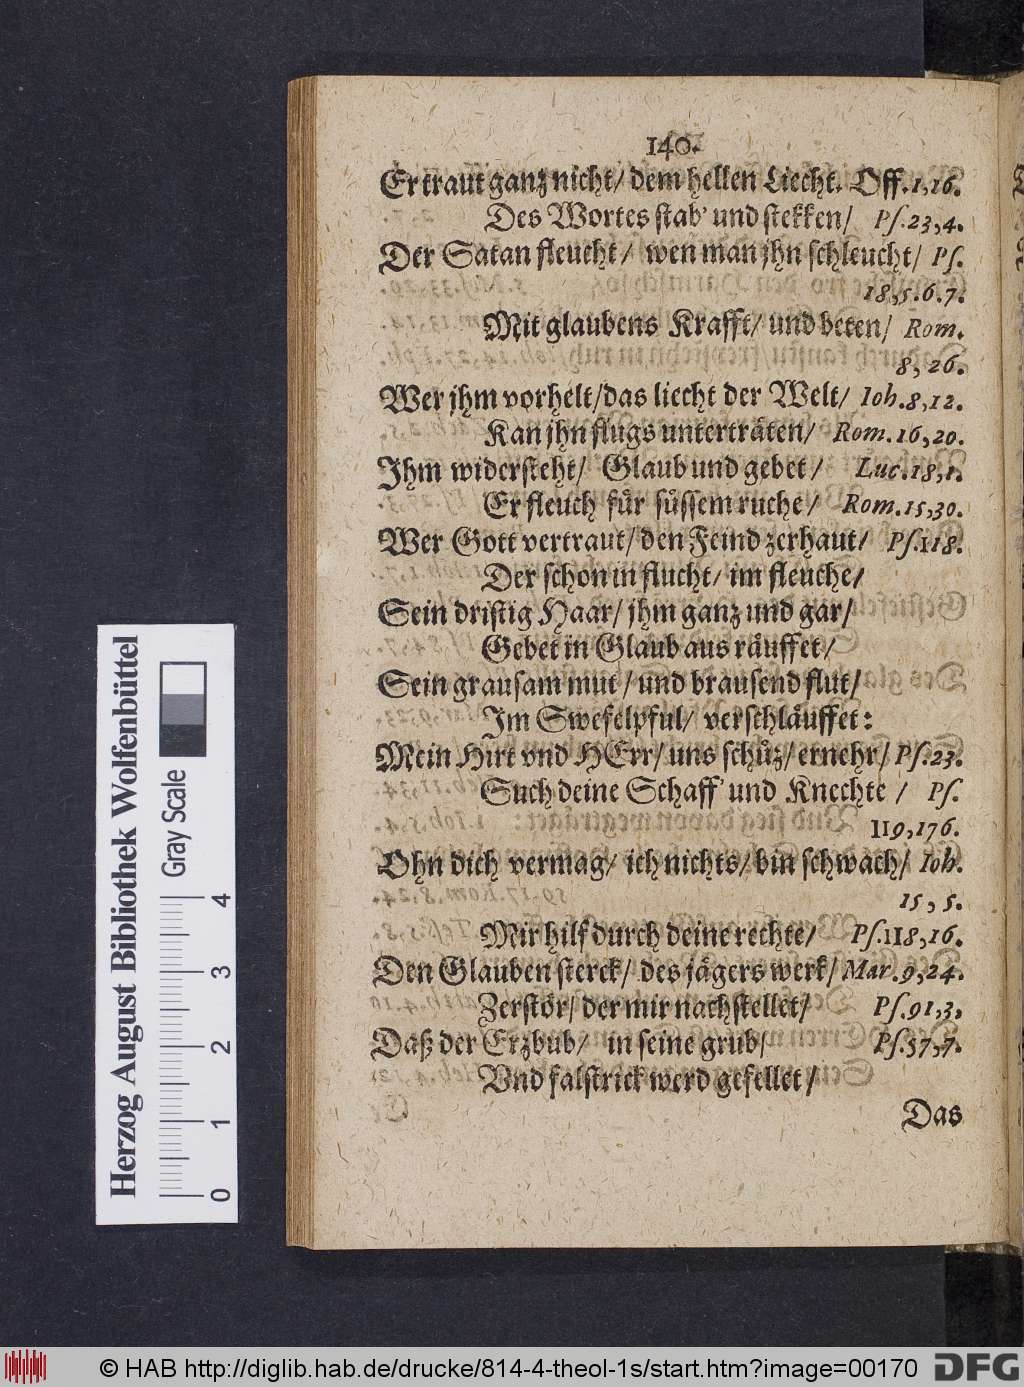 140.
Er traut ganz nicht/ dem hellen Liecht. Off. 1, 16.
Des Wortes stab' und stekken/ Ps. 23, 4.
Der Satan fleucht/ wen man jhn schleucht/ Ps.
18, 5. 6. 7.
Mit glaubens Krafft/ und beten/ Rom.
8, 26.
Wer jhm vorhelt/ das liecht der Welt/ Ioh. 8, 12.
Kan jhn flugs unterträten/ Rom. 16, 20.
Ihm widersteht/ Glaub und gebet/ Luc. 18, 1.
Er fleuch für süssem ruche/ Rom. 15, 30.
Wer Gott vertraut/ den Feind zerhaut/ Ps. 118.
Der schon in flucht/ im fleuche/
Sein dristig Haar/ jhm ganz und gar/
Gebet in Glaub aus räuffet/
Sein grausam mut/ und brausend flut/
Im Swefelpful/ verschläuffet:
Mein Hirt vnd HErr/ uns schüz/ ernehr/ Ps. 23.
Such deine Schaff' und Knechte / Ps.
119, 176.
Ohn dich vermag/ ich nichts/ bin schwach/ Ioh.
15, 5.
Mir hilf durch deine rechte/ Ps. 118, 16.
Den Glauben sterck/ des jägers werk/ Mar. 9, 24.
Zerstör/ der mir nachstellet/ Ps. 91, 3.
Daß der Erzbub/ in seine grub/ Ps. 57, 7.
Vnd falstrick werd gefellet/
Das
Herzog August Bibliothek Wolfenbüttel
Gray Scale
0 1 2 3 4
© HAB http://diglib.hab.de/drucke/814-4-theol-1s/start.htm?image=00170
DFG